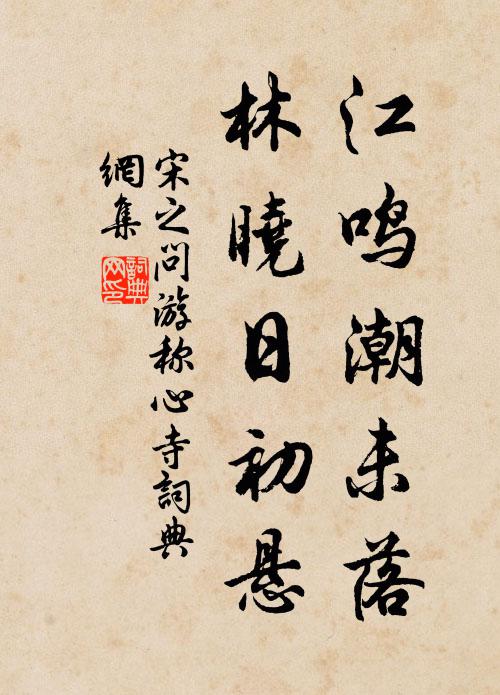 江鸣潮未落
林曉日初悬
宋之问游称心寺詞典
網集
詞典網印